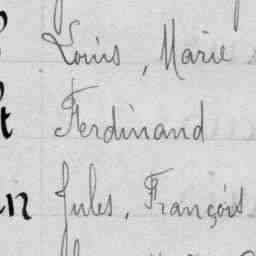 Louis, Marie
t Ferdinand
in Jules, François